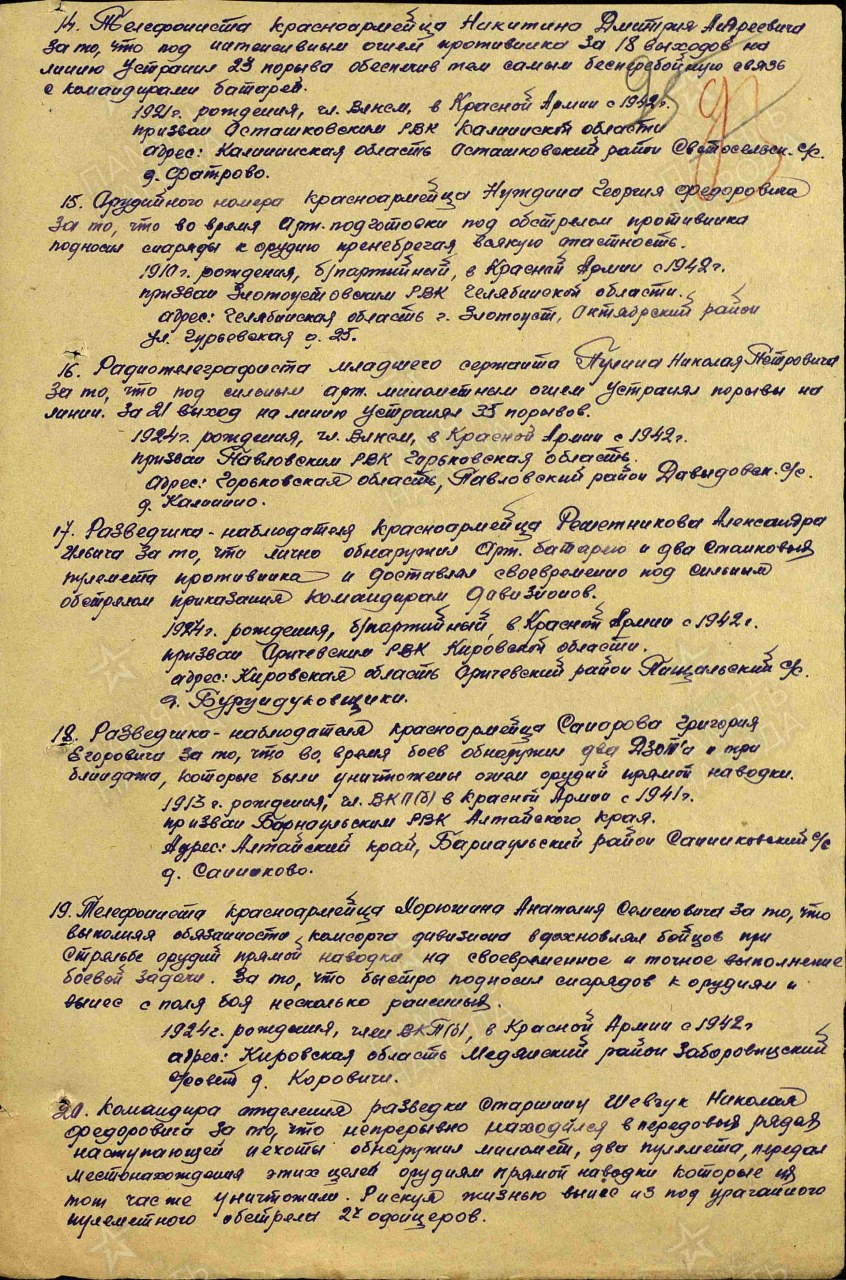 14. Телефониста красноармейца Никитина Дмитрия Андреевича
за то, что под интенсивным огнем противника за 18 выходов на
линию устранил 23 порыва обеспечив тем самым бесперебойную связь
с командирами батарей.
1921г. рождения, чл. ВЛКСМ, в Красной Армии с 1942г.
призван Осташковским РВК Калининской области
адрес: Калининская область Осташковский район Святосельск. с/с.
д. Фатрово.
15. Орудийного номера красноармейца Нуждина Георгия Федоровича
За то, что во время арт. подготовки под обстрелом противника
подносил снаряды к орудию пренебрегая, всякую опастность.
1910г. рождения, б/партийный, в Красной Армии с 1942г.
призван Злотоустовским РВК Челябинской области.
адрес: Челябинская область г. Злотоуст, Октябрский район
ул. Гурьевская д. 25.
16. Радиотелеграфиста младшего сержанта Пулина Николая Петровича
За то, что под сильным арт. минометным огнем устранял порывы на
линии. За 21 выход на линию устранял 35 порывов.
1924г. рождения, чл. ВЛКСМ, в Красной Армии с 1942г.
призван Павловским РВК Горьковская область.
адрес: Горьковская область, Павловский район Давыдовск. с/с.
д. Калинино.
17. Разведчика-наблюдателя красноармейца Решетникова Александра
Ильича за то, что лично обнаружил арт. батарею и два станковых
пулемета противника и доставлял своевременно под сильным
обстрелом приказания командирам дивизионов.
1924г. рождения, б/партийный, в Красной Армии с 1942г.
призван Оричевским РВК Кировской области.
адрес: Кировская область Оричевский район Пищальский с/с.
д. Бурундуковщики.
18. Разведчика-наблюдателя красноармейца Сапарова Григория
Егоровича за то, что во время боев обнаружил два ДЗОТ'а и три
блиндажа, которые были уничтожены огнем орудий прямой наводки.
1913 г. рождения, чл. ВКП(б) в Красной Армии с 1941г.
призван Барнаульским РВК Алтайского края.
Адрес: Алтайский край, Барнаульский район Санниковский с/с
д. Санниково.
19. Телефониста красноармейца Хорюшина Анатолия Семеновича за то, что
выполняя обязанности комсорга дивизиона вдохновлял бойцов при
стрельбе орудий прямой наводки на своевременное и точное выполнение
боевой задачи. За то, что быстро подносил снарядов к орудиям и
вынес с поля боя несколько раненных.
1924г. рождения, член ВКП(б), в Красной Армии с 1942г
адрес: Кировская область Медянский район Заборовицский
с/совет д. Коровичи.
20. Командира отделения разведки Старшину Шевчук Николая
Федоровича за то, что непрерывно находился в передовых рядах
наступающей пехоты обнаружил миномет, два пулемета, передал
местонахождения этих целей орудиям прямой наводки которые их
тот час же уничтожили. Рискуя жизнью вынес из под ураганного
пулеметного обстрела 2х офицеров.